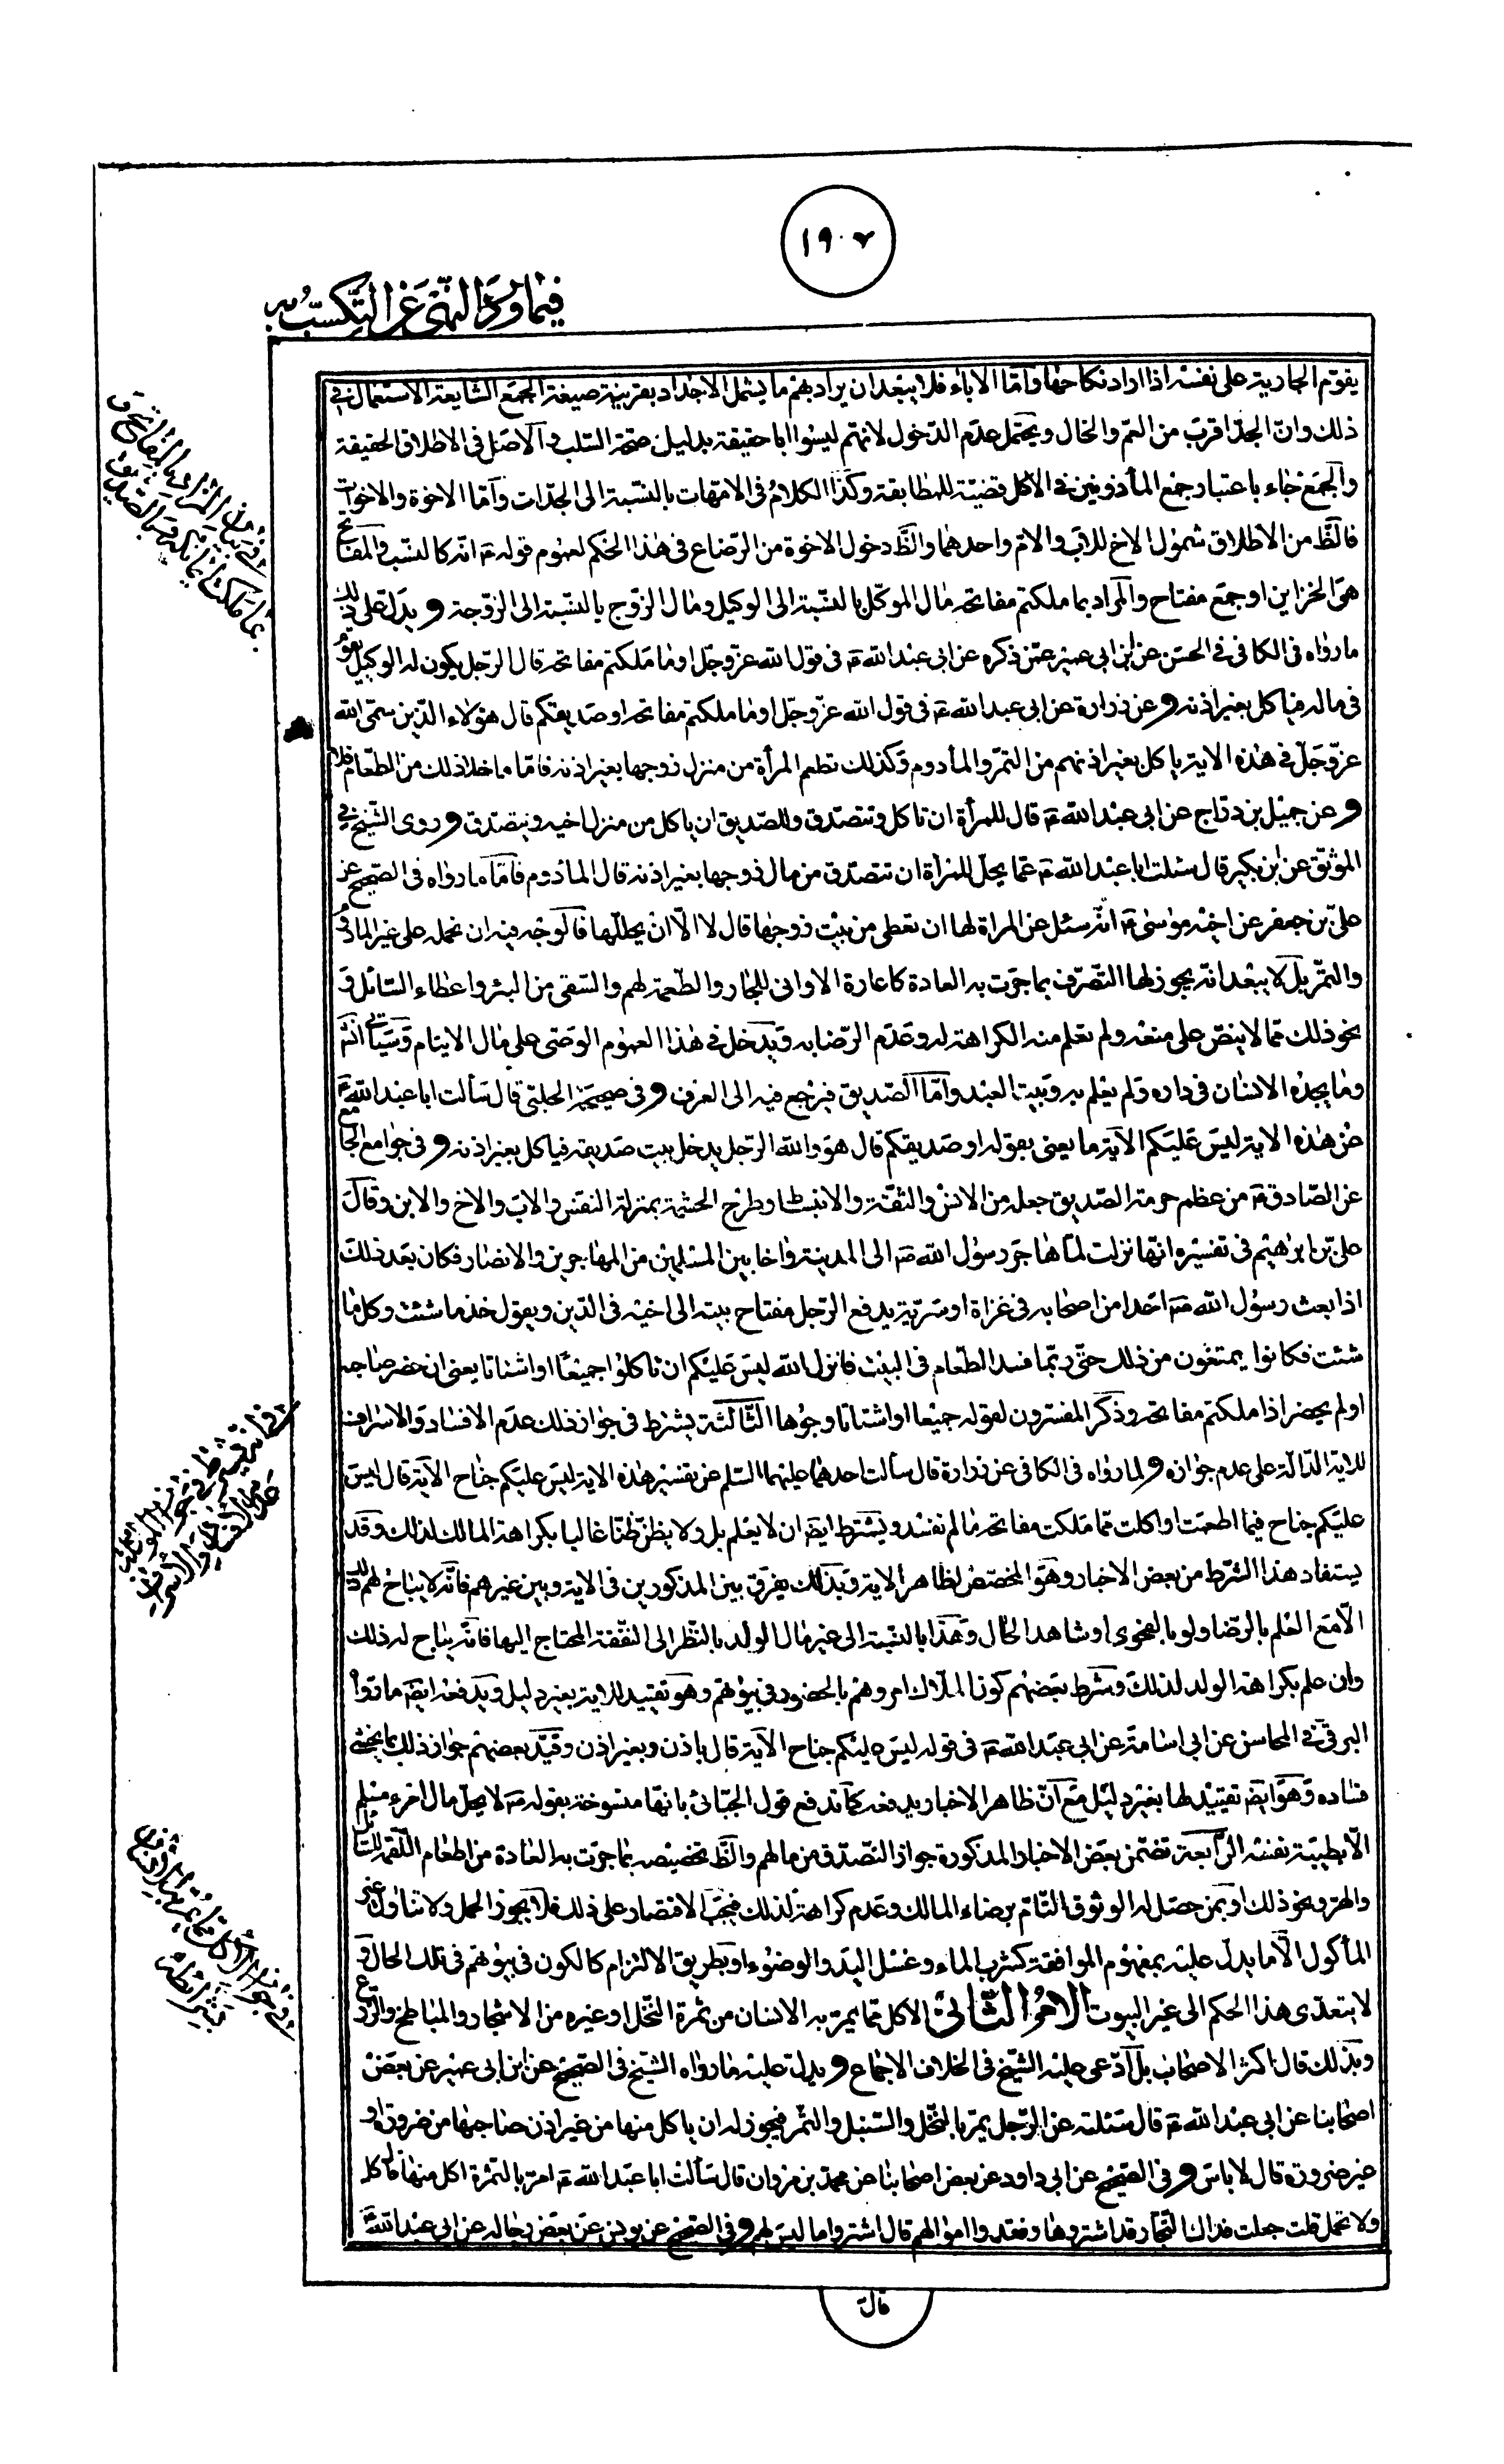 ١٩٠٧
فيما ورد النهي عن التكسب به
يقوّم الجارية على نفسه اذا اراد نكاحها وامّا الاباء فلا يبعد ان يراد بهم ما يشمل الاجداد بقرينة صيغة الجمع الشايعة الاستعمال في
ذلك وانّ الجدّ اقرب من العم والخال ويحتمل عدم الدّخول لانهم ليسوا ابا حقيقة بدليل صحّة السّلب والاصل في الاطلاق الحقيقة
والجمع جاء باعتبار جمع المأذونين في الاكل قضيّة للمطابقة وكذا الكلام في الامّهات بالنّسبة الى الجدّات وامّا الاخوة والاخوات
فالظّ من الاطلاق شمول الاخ للاب والام واحدهما والظّ دخول الاخوة من الرّضاع في هذا الحكم لعموم قوله ع انه كالنّسب والمفاتح
هى الخزاين او جمع مفتاح والمراد بما ملكتم مفاتحه مال الموكّل بالنّسبة الى الوكيل ومال الزوج بالنسبة الى الزوجة و يدلّ على ذلك
ما رواه في الكافي في الحسن عن ابن ابى عمير عمّن ذكره عن ابى عبد الله ع في قول الله عزّ وجلّ او ما ملكتم مفاتحه قال الرّجل يكون له الوكيل يقوم
في ماله فياكل بغير اذنه و عن زرارة عن ابى عبد الله ع في قول الله عزّ وجلّ او ما ملكتم مفاتحه او صديقكم قال هؤلاء الّذين سمّى الله
عزّ وجلّ في هذه الاية ياكل بغير اذنهم من التمر والمأدوم وكذلك تطعم المرأة من منزل زوجها بغير اذنه فامّا ما خلا ذلك من الطّعام فلا
و عن جميل بن درّاج عن ابى عبد الله ع قال للمرأة ان تاكل وتتصدّق وللصّديق ان ياكل من منزل اخيه ويتصدّق و روى الشّيخ في
الموثّق عن ابن بكير قال سئلت ابا عبد الله ع عمّا يحلّ للمرأة ان تتصدّق من مال زوجها بغير اذنه قال المأدوم فامّا ما رواه في الصّحيح عن
علىّ بن جعفر عن اخيه موسى ع انّه سئل عن المراة لها ان تعطى من بيت زوجها قال لا الّا ان يحلّلها فالوجه فيه ان نحمله على غير المادوم
والتمر بل لا يبعد انّه يجوز لها التّصرّف بما جرت به العادة كاعارة الاوانى للجار والطّعمة لهم والسّقى من البئر واعطاء السّائل و
نحو ذلك ممّا لا ينصّ على منعه ولم تعلم منه الكراهة له وعدم الرّضا به ويدخل في هذا العموم الوصّى على مال الايتام وسيأتى انّه
وما يجده الانسان في داره ولم يعلم به وبيت العبد وامّا الصّديق فيرجع فيه الى العرف و في صحيحة الحلبّى قال سألت ابا عبد الله ع
عن هذه الاية ليس عليكم الآية ما يعنى بقوله او صديقكم قال هو والله الرّجل يدخل بيت صديقه فياكل بغير اذنه و في جوامع الجامع
عن الصّادق ع من عظم حرمة الصّديق جعله من الانس والثقة والانبساط وطرح الحشمة بمنزلة النفس والاب والاخ والابن وقال
علىّ بن ابرهيم في تفسيره انها نزلت لمّا هاجر رسول الله ص الى المدينة واخا بين المسلمين من المهاجرين والانصار فكان بعد ذلك
اذا بعث رسول الله ص احدا من اصحابه في غزاة او سريّة يدفع الرّجل مفتاح بيته الى اخيه في الدّين ويقول خذ ما شئت وكل ما
شئت فكانوا يمتنعون من ذلك حتّى ربّما فسد الطّعام في البيت فانزل الله ليس عليكم ان تاكلوا جميعًا او اشتاتا يعنى ان حضر صاحبه
او لم يحضر اذا ملكتم مفاتحه وذكر المفسّرون لقوله جميعا او اشتاتا وجوها الثّالثة يشترط في جواز ذلك عدم الافساد والاسراف
للاية الدّالة على عدم جوازه و لما رواه في الكافى عن زرارة قال سألت احدهما عليهما السّلم عن تفسير هذه الاية ليس عليكم جناح الآية قال ليس
عليكم جناح فيما اطعمت او اكلت ممّا ملكت مفاتحه ما لم تفسد ويشترط ايضا ان لا يعلم بل ولا يظنّ ظنّا غالبا بكراهة المالك لذلك وقد
يستفاد هذا الشّرط من بعض الاخبار وهو المخصّص لظاهر الاية وبذلك يفرق بين المذكورين في الاية وبين غيرهم فانّه لا يباح لهم ذلك
الّا مع العلم بالرّضا ولو بالفحوى او شاهد الحال وهذا بالنسبة الى غير مال الولد بالنّظر الى النّفقة المحتاج اليها فانّه يباح له ذلك
وان علم بكراهة الولد لذلك وشرط بعضهم كون الملّاك امروهم بالحضور في بيوتهم وهو تقييد للاية بغير دليل ويدفعه ايضا ما رواه
البرقى في المحاسن عن ابى اسامة عن ابى عبد الله ع في قوله ليس عليكم جناح الآية قال باذن وبغير اذن وقيّد بعضهم جواز ذلك بما يخشى
فساده وهو ايضا تقييد لها بغير دليل مع انّ ظاهر الاخبار يدفعه كما تدفع قول الجبّائى بانها منسوخة بقوله ص لا يحلّ مال امرء مسلم
الّا بطيبة نفسه الرّابعة تضمّن بعض الاخبار المذكورة جواز التصدّق من مالهم والظّ تخصيصه بما جرت به العادة من اطعام اللّقمة للسّائل
والهرّ ونحو ذلك او بمن حصل له الوثوق التّام برضاء المالك وعدم كراهته لذلك فيجب الاقتصاد على ذلك فلا يجوز الحمل ولا تناول غير
المأكول الّا ما يدلّ عليه بمفهوم الموافقة كشرب الماء وغسل اليد والوضوء او بطريق الالتزام كالكون في بيوتهم في تلك الحال و
لا يتعدّى هذا الحكم الى غير البيوت الامر الثّانى الاكل ممّا يمرّ به الانسان من ثمرة النّخل او غيره من الاشجار والمباطخ والزّرع
وبذلك قال اكثر الاصحاب بل ادّعى عليه الشّيخ في الخلاف الاجماع و يدلّ عليه ما رواه الشّيخ في الصّحيح عن ابن ابى عمير عن بعض
اصحابنا عن ابى عبد الله ع قال سئلته عن الرّجل يمرّ بالنّخل والسّنبل والثمر فيجوز له ان ياكل منها من غير اذن صاحبها من ضرورة او
غير ضرورة قال لا باس و في الصّحيح عن ابى داود عن بعض اصحابنا عن محمد بن مروان قال سألت ابا عبد الله ع امرّ بالثمرة اكل منها قال كل
ولا تحمل قلت جعلت فداك انّ التّجّار قد اشتروها ونقدوا اموالهم قال اشتروا ما ليس لهم و في الصّحيح عن يونس عن بعض رجاله عن ابى عبد الله ع
قال